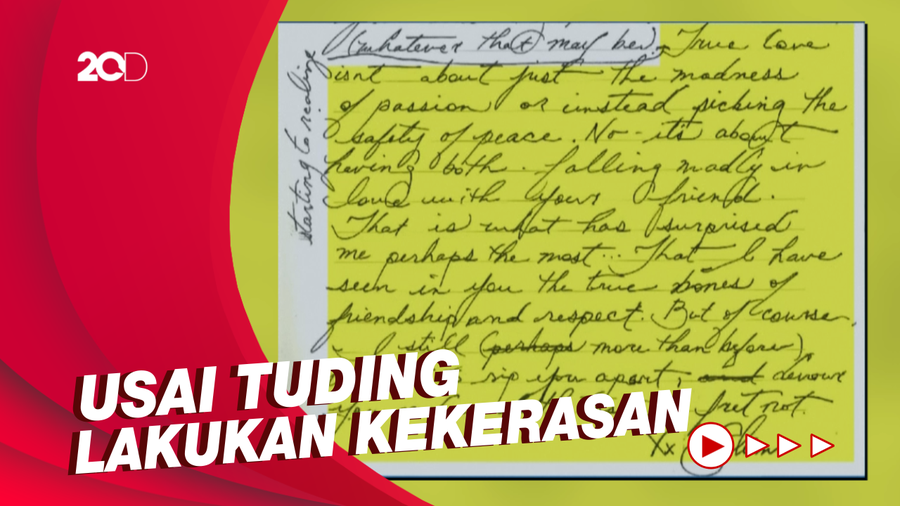 20D
(whatever that may be). True love
isnt about just the madness
of passion or instead picking the
safety of peace. No - its about
having both. falling madly in
love with your friend.
That is what has surprised
me perhaps the most... That I have
seen in you the true bones of
friendship and respect. But of course,
I still (perhaps more than before)
rip you apart, and devour
fret not.
Xx
starting to realize
USAI TUDING
LAKUKAN KEKERASAN